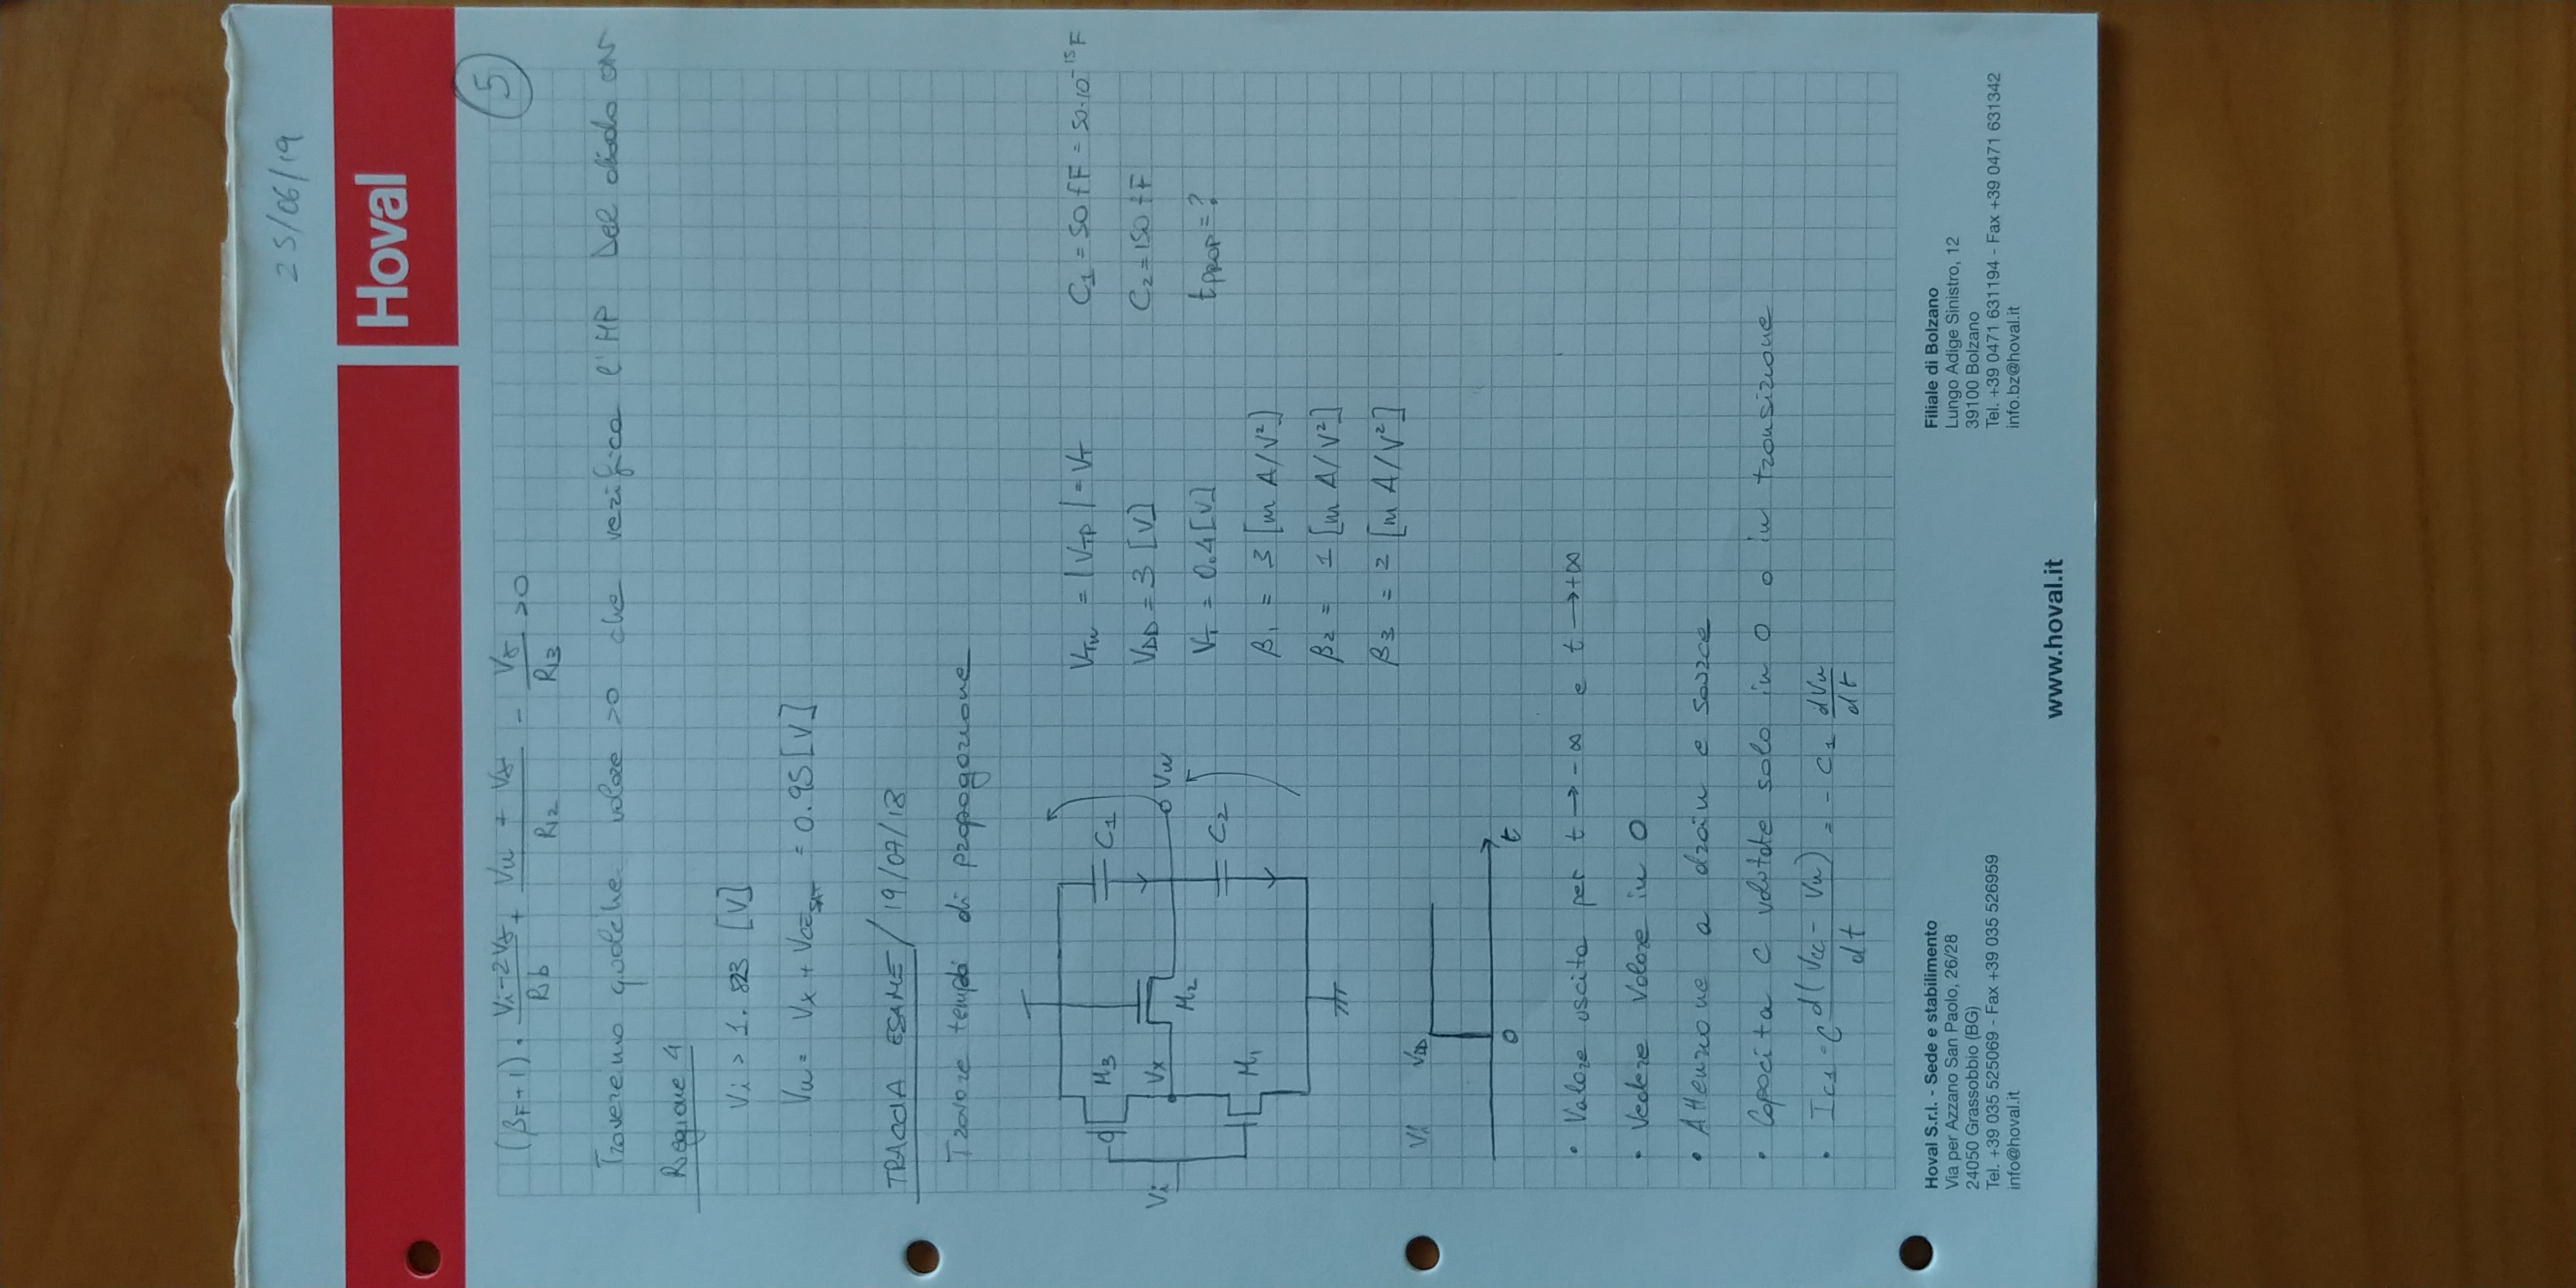 25/06/19
Hoval
5
(βF+1) · (Vi-2Vγ)/Rb + (Vu + Vγ)/R2 - Vγ/R3 >0
Troveremo qualche valore >0 che verifica l'HP Del diodo ON
Regione 4
Vi > 1.823 [V]
Vu = Vx + VCESAT = 0.95 [V]
TRACCIA ESAME / 19/07/18
Trovare tempi di propagazione
M3
C1
Vi
Vx
Vu
M2
C2
M1
VTN = |VTP| = VT
C1 = 50 fF = 50·10^-15 F
VDD = 3 [V]
C2 = 150 fF
VT = 0.4 [V]
tPROP = ?
β1 = 3 [m A/V²]
β2 = 1 [m A/V²]
β3 = 2 [m A/V²]
Vi VDD
0 t
• Valore uscita per t → -∞ e t → +∞
• Vedere Valore in 0
• Attenzione a drain e source
• Capacita C valutate solo in 0 o in transizione
• IC1 = C d(Vcc - Vu)/dt = - C1 dVu/dt
Hoval S.r.l. - Sede e stabilimento
Via per Azzano San Paolo, 26/28
24050 Grassobbio (BG)
Tel. +39 035 525069 - Fax +39 035 526959
info@hoval.it
Filiale di Bolzano
Lungo Adige Sinistro, 12
39100 Bolzano
Tel. +39 0471 631194 - Fax +39 0471 631342
info.bz@hoval.it
www.hoval.it